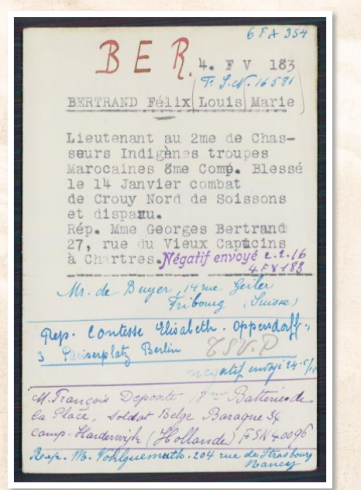 6 FA 354
BER.
4. F V 183
F. S. N. 16531
BERTRAND Félix Louis Marie
Lieutenant au 2me de Chas-
seurs Indigènes troupes
Marocaines 8me Comp. Blessé
le 14 Janvier combat
de Crouy Nord de Soissons
et disparu.
Rép. Mme Georges Bertrand
27, rue du Vieux Capucins
à Chartres. Négatif envoyé 2-2-16
4 F V 183
Mr. de Buyer, 14 rue Geiler
Fribourg (Suisse)
Rep. Comtesse Elisabeth. Oppersdorff.
3 Pariserplatz Berlin
TSVP
négatif envoyé 24-5/
M. François Depoorte 18me Batterie de
la Place, Soldat Belge Baraque 34
Camp. Harderwijk (Hollande) FSN 40096
Resp. M. Wohlguemuth. 204 rue de Strasbourg
Nancy